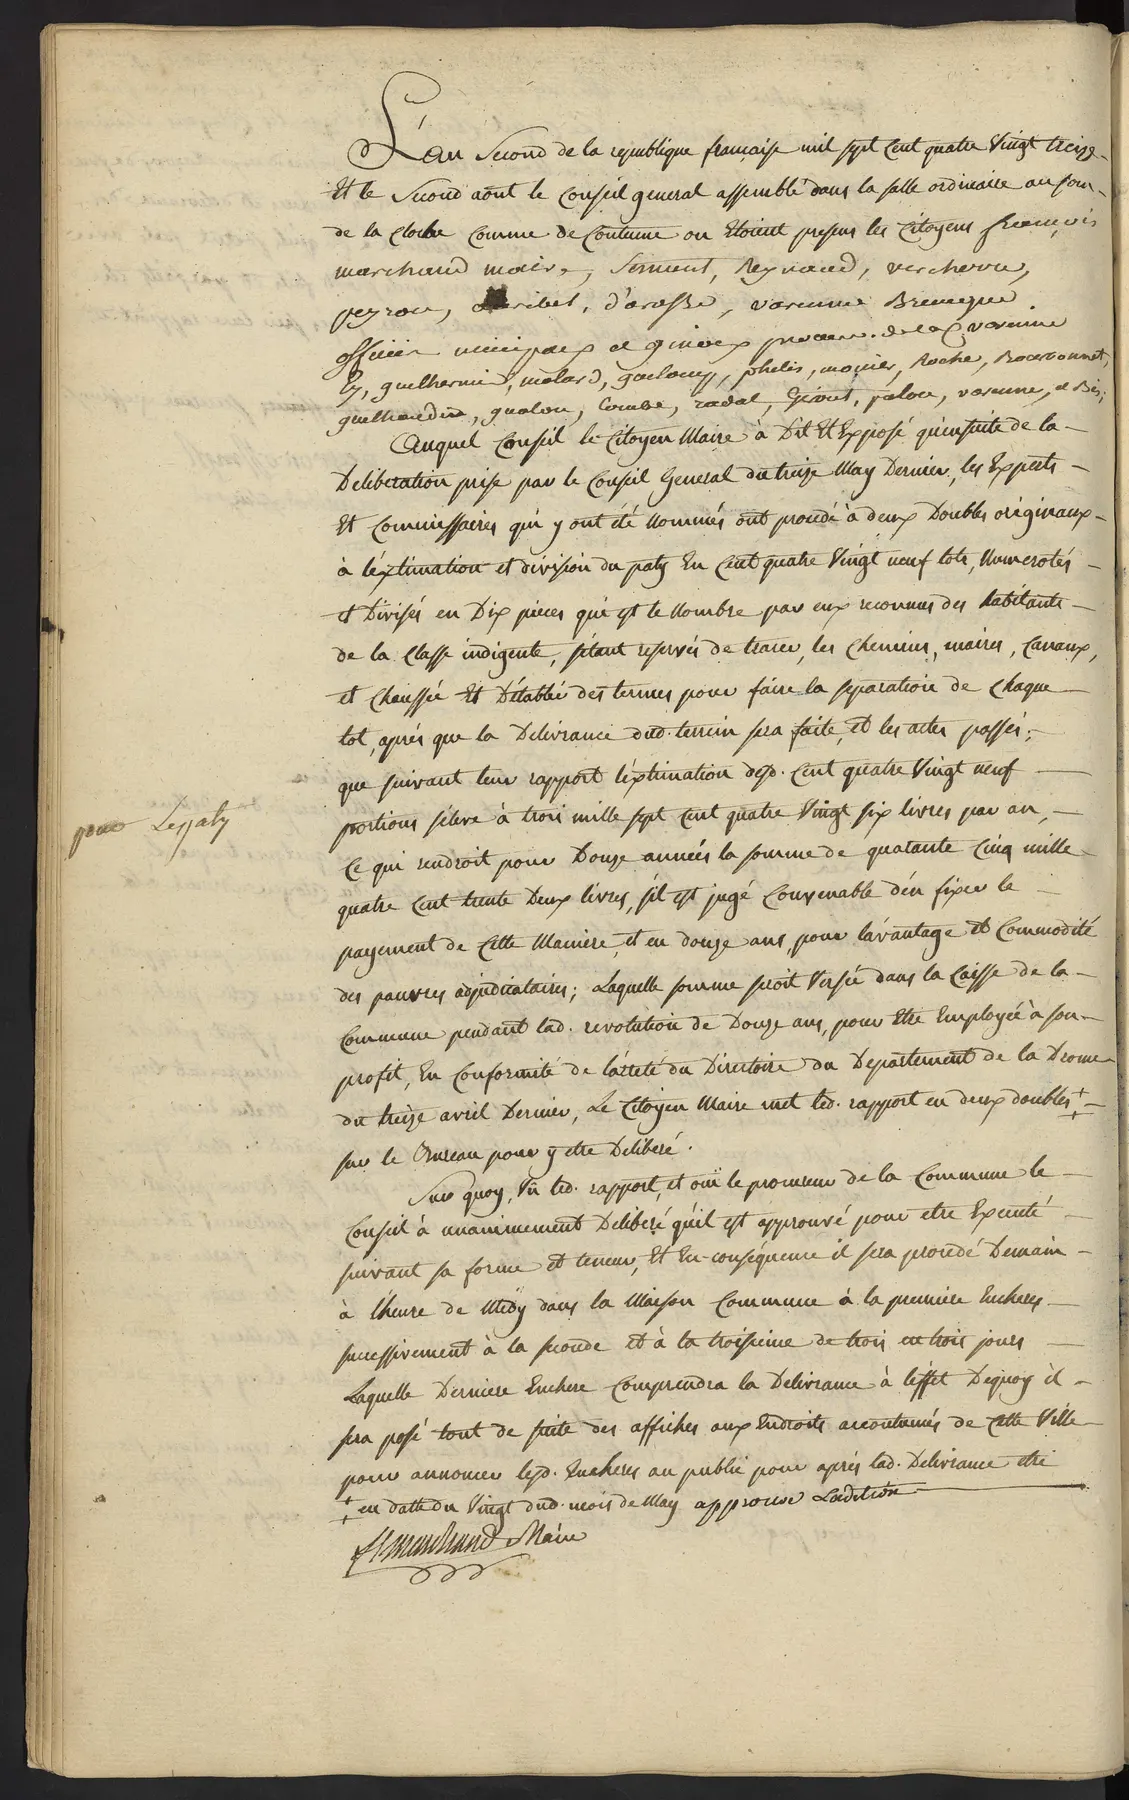 L'an Second de la republique francaise mil sept Cent quatre Vingt treize
Et le Second aout le Conseil general assemblé dans la salle ordinaire au son
de la cloche Comme de Coutume ou Etoient presens les Citoyens françois
marchand maire, Serment, Reynaud,
peyrou, d'arasse, varenne
officiers municipaux et procur. de la C. varenne
Ey, guilhermin, molard, phelis, monier, Roche, Bourbonnet,
gualou, Combe, varenne, et
Auquel Conseil le Citoyen Maire à Dit Et Exposé qu'ensuite de la
Deliberation prise par le Conseil General du treize May Dernier, les Experts
Et Commissaires qui y ont été Nommés ont procedé à deux Doubles originaux
à l'éxtimation et division du paty En Cent quatre Vingt neuf lots, Numerotés
et Divisés en Dix pieces qui est le Nombre par eux reconnu des habitants
de la Classe indigente, s'étant reservés de tracer, les Chemins, maires, Canaux,
et Chaussée Et D'établir des termes pour faire la separation de Chaque
lot, aprés que la Delivrance dud. terrein sera faite, et les actes passés;
que suivant leur rapport l'éxtimation desd. Cent quatre Vingt neuf
portions s'éleve à trois mille sept Cent quatre Vingt six livres par an,
pour Lepaty
Ce qui rendroit pour Douze années la somme de quarante Cinq mille
quatre Cent trente Deux livres, s'il est jugé Convenable d'en fixer le
payement de Cette Maniere, et en douze ans, pour l'avantage et Commodité
des pauvres adjudicataires; Laquelle somme seroit Versée dans la Caisse de la
Commune pendant lad. revolution de Douze ans, pour Etre Employée à son
profit, En Conformité de l'arreté du Directoire du Departement de la Drome
du treize avril Dernier, Le Citoyen Maire met led. rapport en deux doubles ‡
sur le Bureau pour y etre Deliberé.
Sur quoy, Vu led. rapport, et ouï le procureur de la Commune le
Conseil à unanimement Deliberé qu'il est approuvé pour etre Executé
suivant sa forme et teneur, Et En conséquence il sera procedé Demain
à l'heure de Midy dans la Maison Commune à la premiere Enchere
successivement à la seconde et à la troisieme de trois en trois jours
Laquelle Derniere Enchere Comprendra la Delivrance à l'effet Dequoy il
sera posé tout de suite des affiches aux Endroits accoutumés de Cette Ville
pour annoncer lesd. Encheres au public pour aprés lad. Delivrance etre
‡ en datte du Vingt dud. mois de May approuvé Ladition
marchand Maire